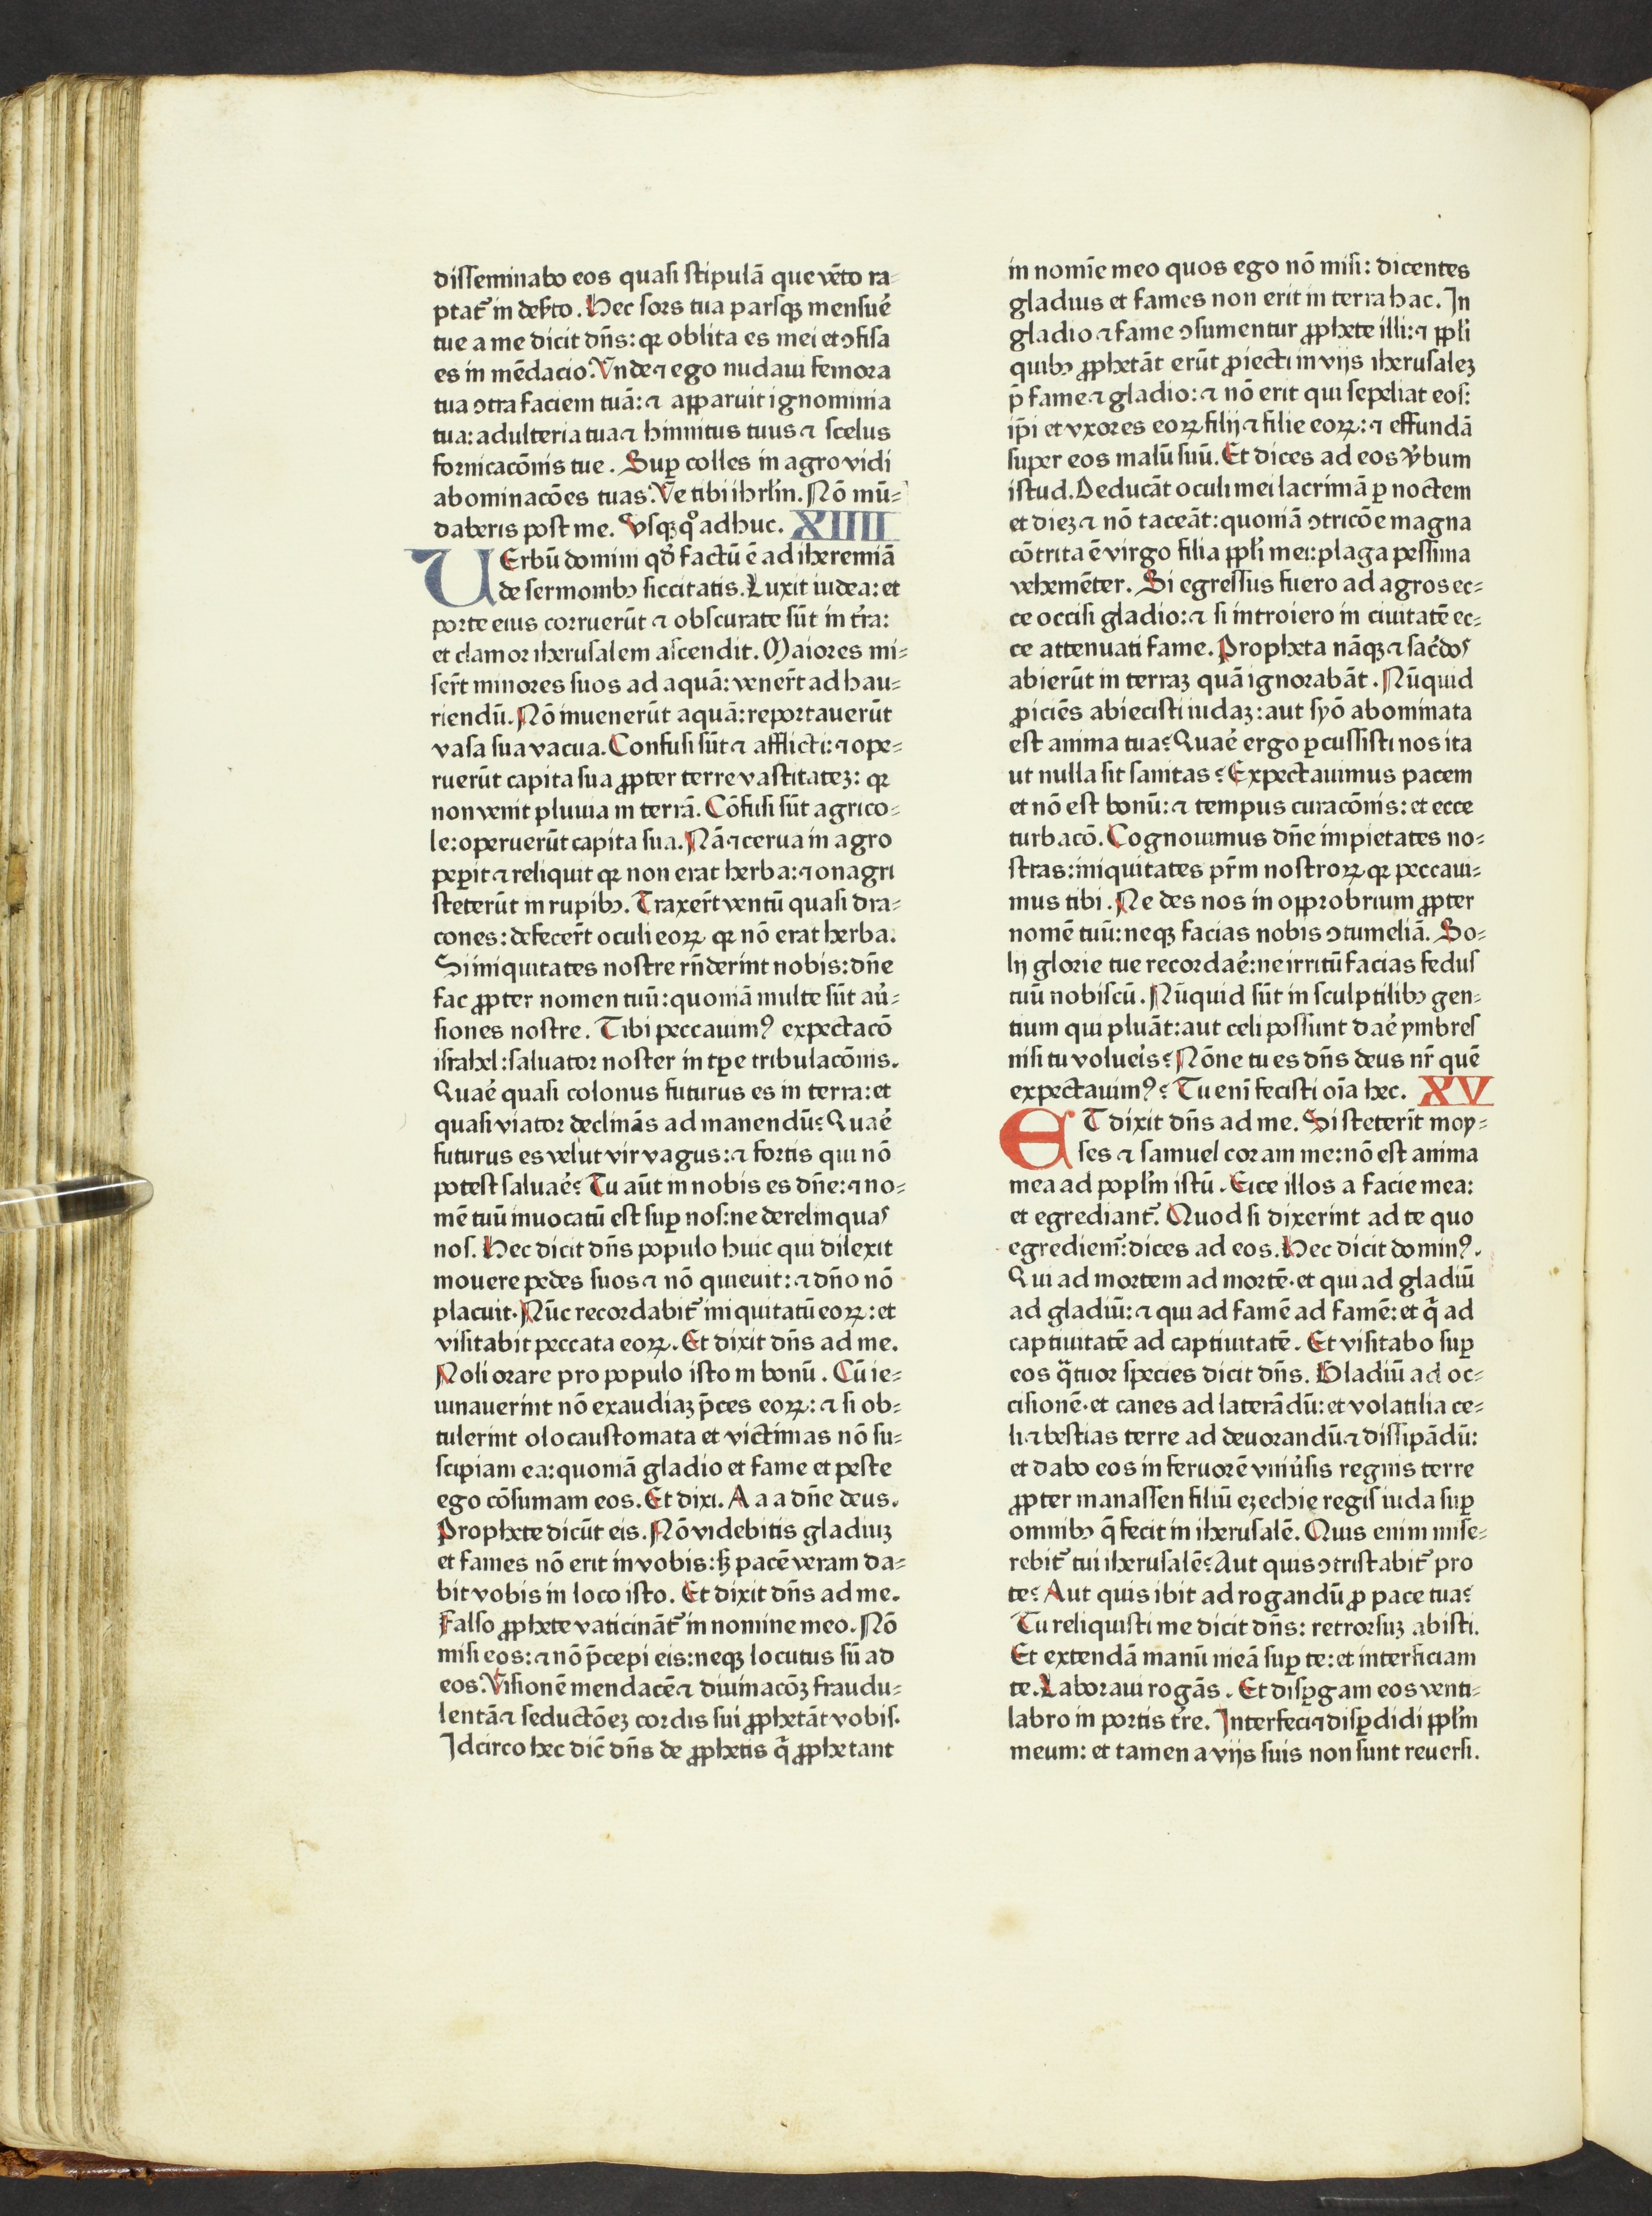 disseminabo eos quasi stipulā que vēto ra-
ptat᷑ in deẜto. Hec sors tua parsqꝫ mensue᷑
tue a me dicit dn̄s: qꝛ oblita es mei et ↄfisa
es in mēdacio. Vnde ⁊ ego nudaui femora
tua ↄtra faciem tuā: ⁊ apparuit ignominia
tua: adulteria tua ⁊ hinnitus tuus ⁊ scelus
fornicacōnis tue. Suꝑ colles in agro vidi
abominacōes tuas. Ve tibi ihrlm̄. Nō mū-
daberis post me. Vsqꝫ qͦ adhuc. XIIII
VErbū domini qd̄ factū ē ad iheremiā
de sermonibꝫ siccitatis. Luxit iudea: et
porte eius corruerūt ⁊ obscurate sūt in tr̄a:
et clamor iherusalem ascendit. Maiores mi-
ser̄t minores suos ad aquā: vener̄t ad hau-
riendū. Nō inuenerūt aquā: reportauerūt
vasa sua vacua. Confusi sūt ⁊ afflicti: ⁊ ope-
ruerūt capita sua ꝓpter terre vastitateꝫ: qꝛ
non venit pluuia in terrā. Cōfusi sūt agrico-
le: operuerūt capita sua. Nā ⁊ cerua in agro
peꝑit ⁊ reliquit qꝛ non erat herba: ⁊ onagri
steterūt in rupibꝫ. Traxer̄t ventū quasi dra-
cones: defecer̄t oculi eoꝝ qꝛ nō erat herba.
Si iniquitates nostre rn̄derint nobis: dn̄e
fac ꝓpter nomen tuū: quoniā multe sūt au᷑-
siones nostre. Tibi peccauimꝰ expectacō
israhel: saluator noster in tꝑe tribulacōnis.
Quae᷑ quasi colonus futurus es in terra: et
quasi viator declinās ad manendū? Quae᷑
futurus es velut vir vagus: ⁊ fortis qui nō
potest saluae᷑? Tu aūt in nobis es dn̄e: ⁊ no-
mē tuū inuocatū est suꝑ nos: ne derelinquas
nos. Hec dicit dn̄s populo huic qui dilexit
mouere pedes suos ⁊ nō quieuit: ⁊ dn̄o nō
placuit. Nūc recordabit᷑ iniquitatū eoꝝ: et
visitabit peccata eoꝝ. Et dixit dn̄s ad me.
Noli orare pro populo isto in bonū. Cū ie-
iunauerint nō exaudiaꝫ p̄ces eoꝝ: ⁊ si ob-
tulerint olocaustomata et victimas nō su-
scipiam ea: quoniā gladio et fame et peste
ego cōsumam eos. Et dixi. A a a dn̄e deus.
Prophete dicūt eis. Nō videbitis gladiuꝫ
et fames nō erit in vobis: sꝫ pacē veram da-
bit vobis in loco isto. Et dixit dn̄s ad me.
Falso ꝓphete vaticināt᷑ in nomine meo. Nō
misi eos: ⁊ nō p̄cepi eis: neqꝫ locutus sū ad
eos. Visionē mendacē ⁊ diuinacōꝫ fraudu-
lentā ⁊ seductōeꝫ cordis sui ꝓphetāt vobis.
Idcirco hec dic̄ dn̄s de ꝓphetis q̄ ꝓphetant
in nomīe meo quos ego nō misi: dicentes
gladius et fames non erit in terra hac. In
gladio ⁊ fame ↄsumentur ꝓphete illi: ⁊ ppl̄i
quibꝫ ꝓphetāt erūt ꝓiecti in vijs iherusaleꝫ
p̄ fame ⁊ gladio: ⁊ nō erit qui sepeliat eos:
ip̄i et vxores eoꝝ filij ⁊ filie eoꝝ: ⁊ effundā
super eos malū suū. Et dices ad eos v᷑bum
istud. Deducāt oculi mei lacrimā ꝑ noctem
et dieꝫ ⁊ nō taceāt: quoniā ↄtricōe magna
cōtrita ē virgo filia ppl̄i mei: plaga pessima
vehemēter. Si egressus fuero ad agros ec-
ce occisi gladio: ⁊ si introiero in ciuitatē ec-
ce attenuati fame. Propheta nāqꝫ ⁊ sac᷑dos
abierūt in terraꝫ quā ignorabāt. Nūquid
ꝓiciēs abiecisti iudaꝫ: aut syō abominata
est anima tua? Quae᷑ ergo ꝑcussisti nos ita
ut nulla sit sanitas? Expectauimus pacem
et nō est bonū: ⁊ tempus curacōnis: et ecce
turbacō. Cognouimus dn̄e impietates no-
stras: iniquitates pr̄m nostroꝝ qꝛ peccaui-
mus tibi. Ne des nos in opprobrium ꝓpter
nomē tuū: neqꝫ facias nobis ↄtumeliā. So-
lij glorie tue recordae᷑: ne irritū facias fedus
tuū nobiscū. Nūquid sūt in sculptilibꝫ gen-
tium qui pluāt: aut celi possunt dae᷑ ymbres
nisi tu volueis᷑? Nōne tu es dn̄s deus nr̄ quē
expectauimꝰ? Tu eni᷑ fecisti oīa hec. XV
ET dixit dn̄s ad me. Si steterīt moy-
ses ⁊ samuel coram me: nō est anima
mea ad popl̄m istū. Eice illos a facie mea:
et egrediant᷑. Quod si dixerint ad te quo
egrediem᷑: dices ad eos. Hec dicit dominꝰ.
Qui ad mortem ad mortē. et qui ad gladiū
ad gladiū: ⁊ qui ad famē ad famē: et q̄ ad
captiuitatē ad captiuitatē. Et visitabo suꝑ
eos q̄tuor species dicit dn̄s. Gladiū ad oc-
cisionē. et canes ad laterādū: et volatilia ce-
li ⁊ bestias terre ad deuorandū ⁊ dissipādū:
et dabo eos in feruorē vniu᷑sis regnis terre
ꝓpter manassen filiū ezechie regis iuda suꝑ
omnibꝫ q̄ fecit in iherusalē. Quis enim mise-
rebit᷑ tui iherusalē? Aut quis ↄtristabit᷑ pro
te? Aut quis ibit ad rogandū ꝓ pace tua?
Tu reliquisti me dicit dn̄s: retrorsuꝫ abisti.
Et extendā manū meā suꝑ te: et interficiam
te. Laboraui rogās. Et disꝑgam eos venti-
labro in portis tr̄e. Interfeci ⁊ disꝑdidi ppl̄m
meum: et tamen a vijs suis non sunt reuersi.